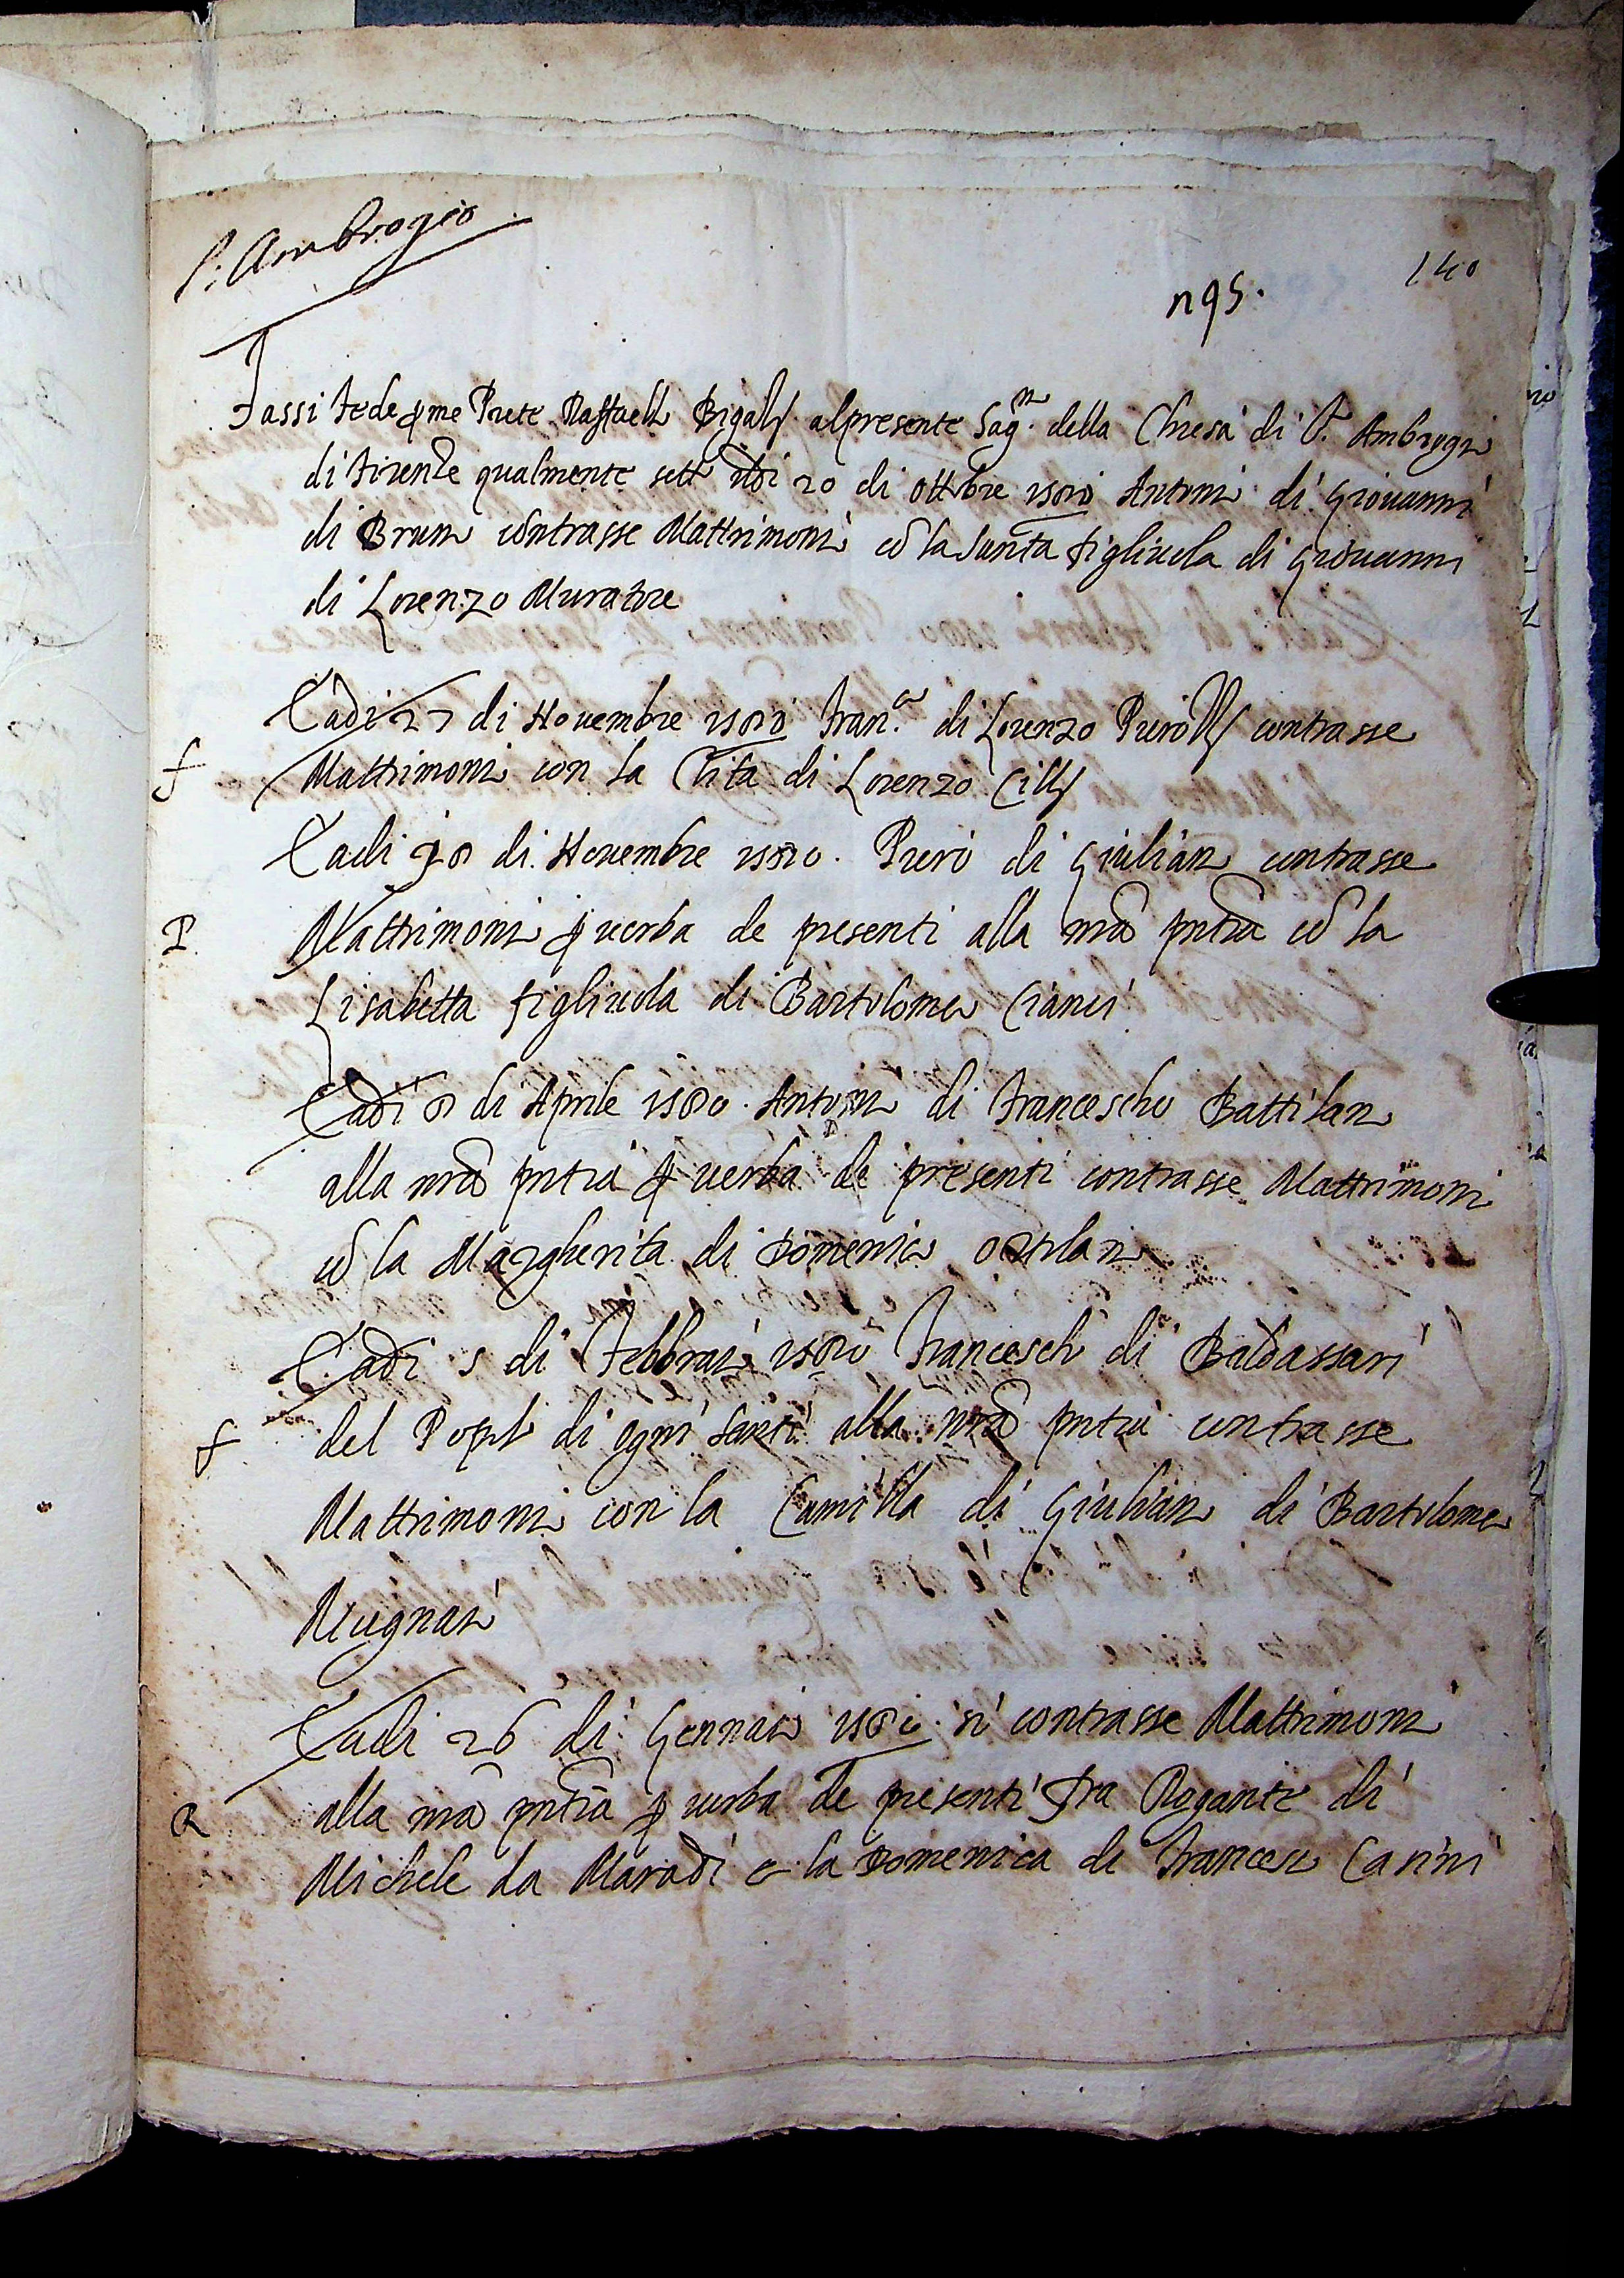 S: Ambrogio
140
n 95.
Fassi fede p me Prete Raffaello Bigalli al presente Sag.no della Chiesa di S. Ambrogio
di firenze qualmente sotto di 20 di ottobre 1580 Antonio di Giovanni
di Bruno contrasse Mattrimonio cō la Santa figliuola di Giovanni
di Lorenzo Muratore
E adi 27 di Novembre 1580 Fran.co di Lorenzo Pieralli contrasse
f Mattrimonio con la Chita di Lorenzo Cilli
E adi 30 di Novembre 1580. Piero di Giuliano contrasse
P Mattrimonio p verba de presenti alla nrā pntiā cō la
Lisabetta figliuola di Bartolomeo Cianci
E adi 8 di Aprile 1580. Antonio di Francescho Battilano
alla nrā pntia p verba de presenti contrasse Mattrimonio
cō la Margherita di Domenico ortolano
E adi 5 di Febbraio 1580 Francescho di Baldassari
f del Popolo di ogni santi alla nrā pntia contrasse
Mattrimonio con la Camilla di Giuliano di Bartolomeo
Mugnaio
E adi 26 di Gennaio 1580 si contrasse Mattrimonio
R alla nrā pntiā p verba de presenti fra Rogante di
Michele da Maradi e la Domenica di Francesco Carini